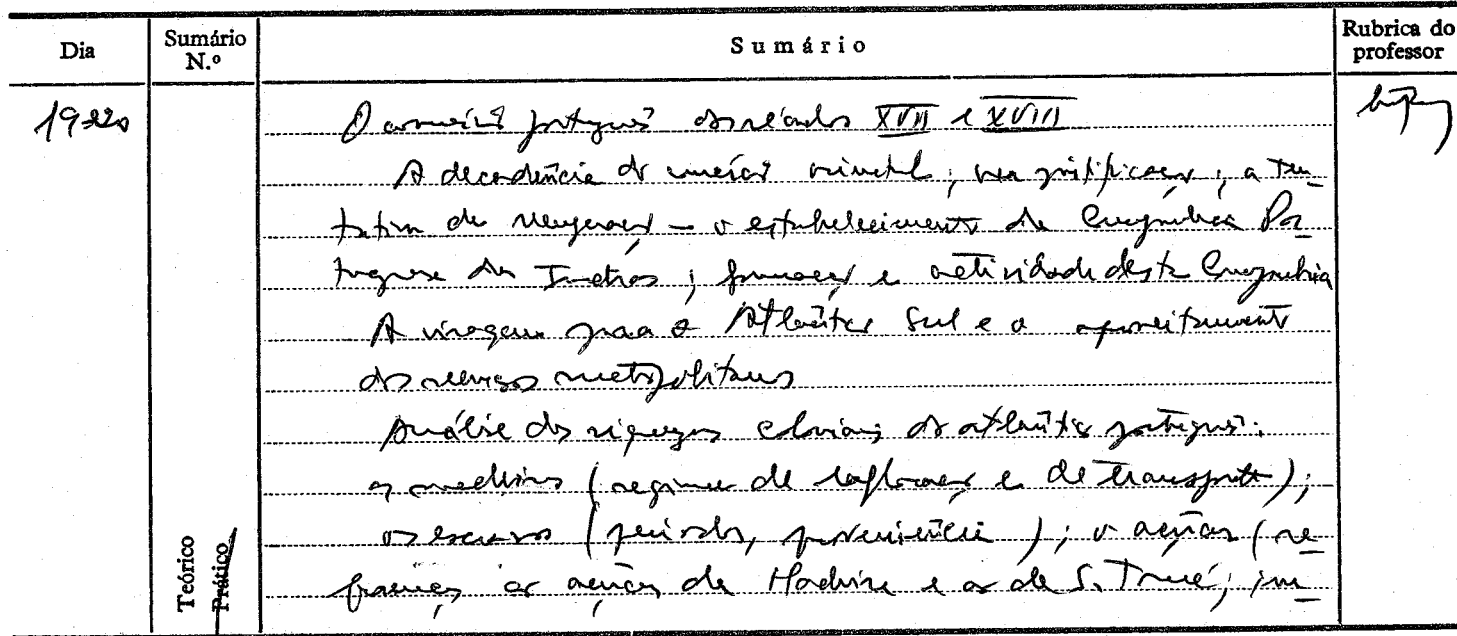 Dia
Sumário N.º
Sumário
Rubrica do professor
O comércio português dos séculos XVII e XVIII
A decadência do comércio oriental; sua justificação; a ten-
tativa de – o estabelecimento da Companhia Por-
tuguesa das Índias; formação e actividade desta Companhia
A viragem para o Atlântico Sul e o aproveitamento
dos recursos metropolitanos
Análise das riquezas coloniais do atlântico português:
as madeiras (regime de exploração e de transporte);
os escravos (período, proveniência); o açúcar (re-
ferência ao açúcar da Madeira e ao de S. Tomé; im-
Teórico
Prático